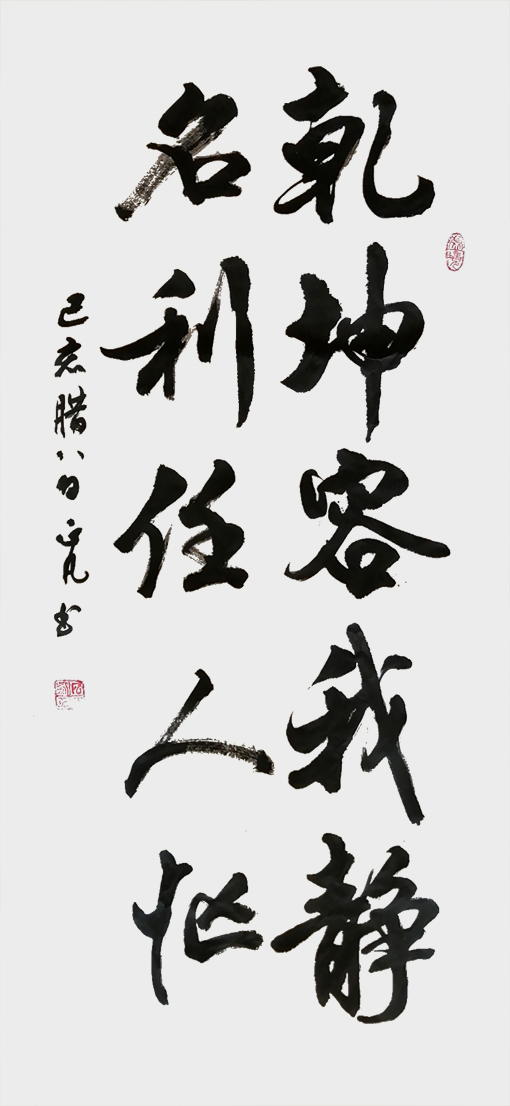 乾坤容我静
名利任人忙
己亥腊八日正凡书